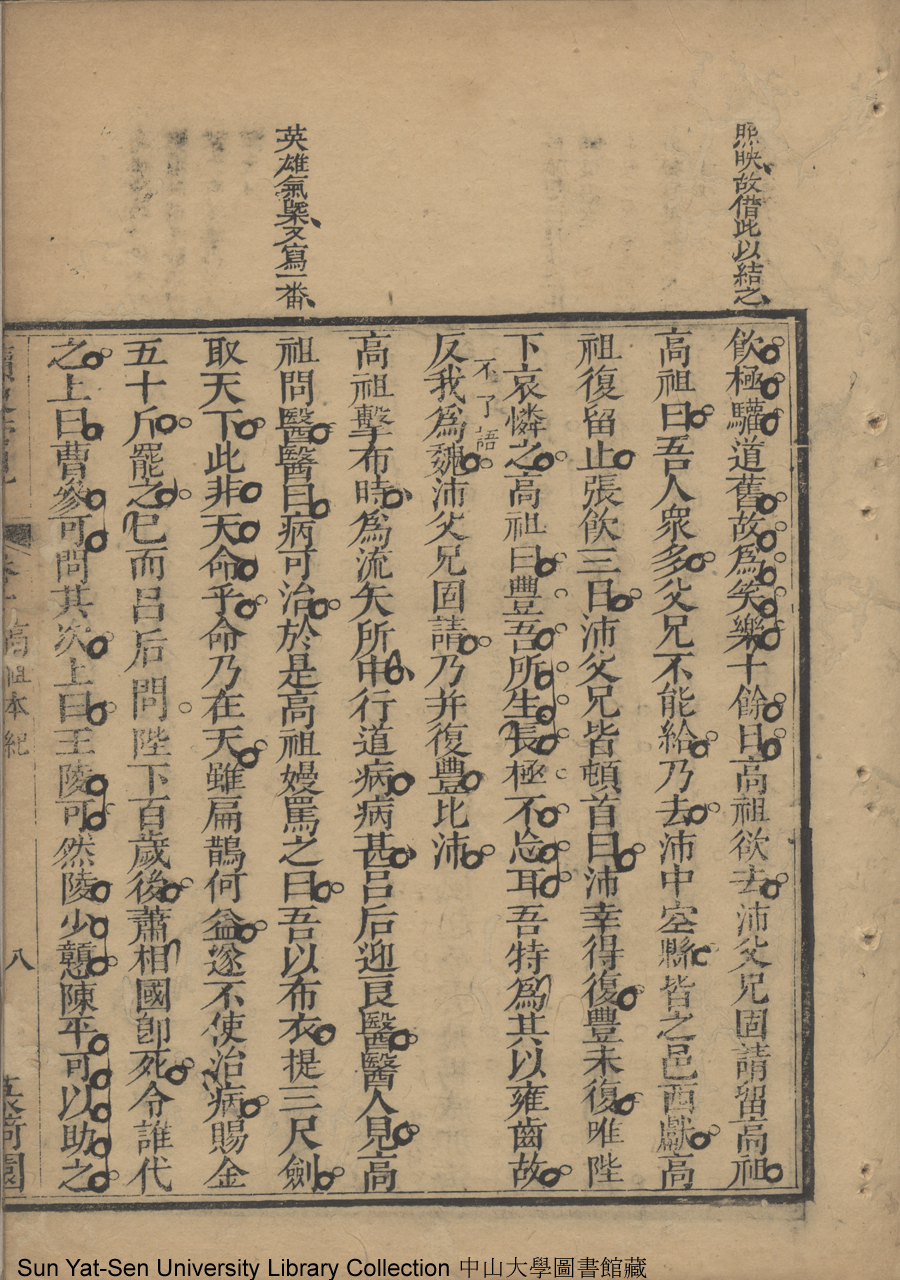 照映故借此以結之
英雄氣槩又寫一番
飲極驩道舊故為笑樂十餘日高祖欲去沛父兄固請留高祖
高祖曰吾人衆多父兄不能給乃去沛中空縣皆之邑西獻高
祖復留止張飲三日沛父兄皆頓首曰沛幸得復豐未復唯陛
下哀憐之高祖曰豐吾所生長極不忘耳吾特為其以雍齒故
不了語
反我為魏沛父兄固請乃并復豐比沛
高祖擊布時為流矢所中行道病病甚呂后迎良醫醫人見高
祖問醫醫曰病可治於是高祖嫚罵之曰吾以布衣提三尺劍
取天下此非天命乎命乃在天雖扁鵲何益遂不使治病賜金
五十斤罷之已而呂后問陛下百歲後蕭相國卽死令誰代
之上曰曹參可問其次上曰王陵可然陵少戇陳平可以助之
高祖本紀
八
Sun Yat-Sen University Library Collection 中山大學圖書館藏